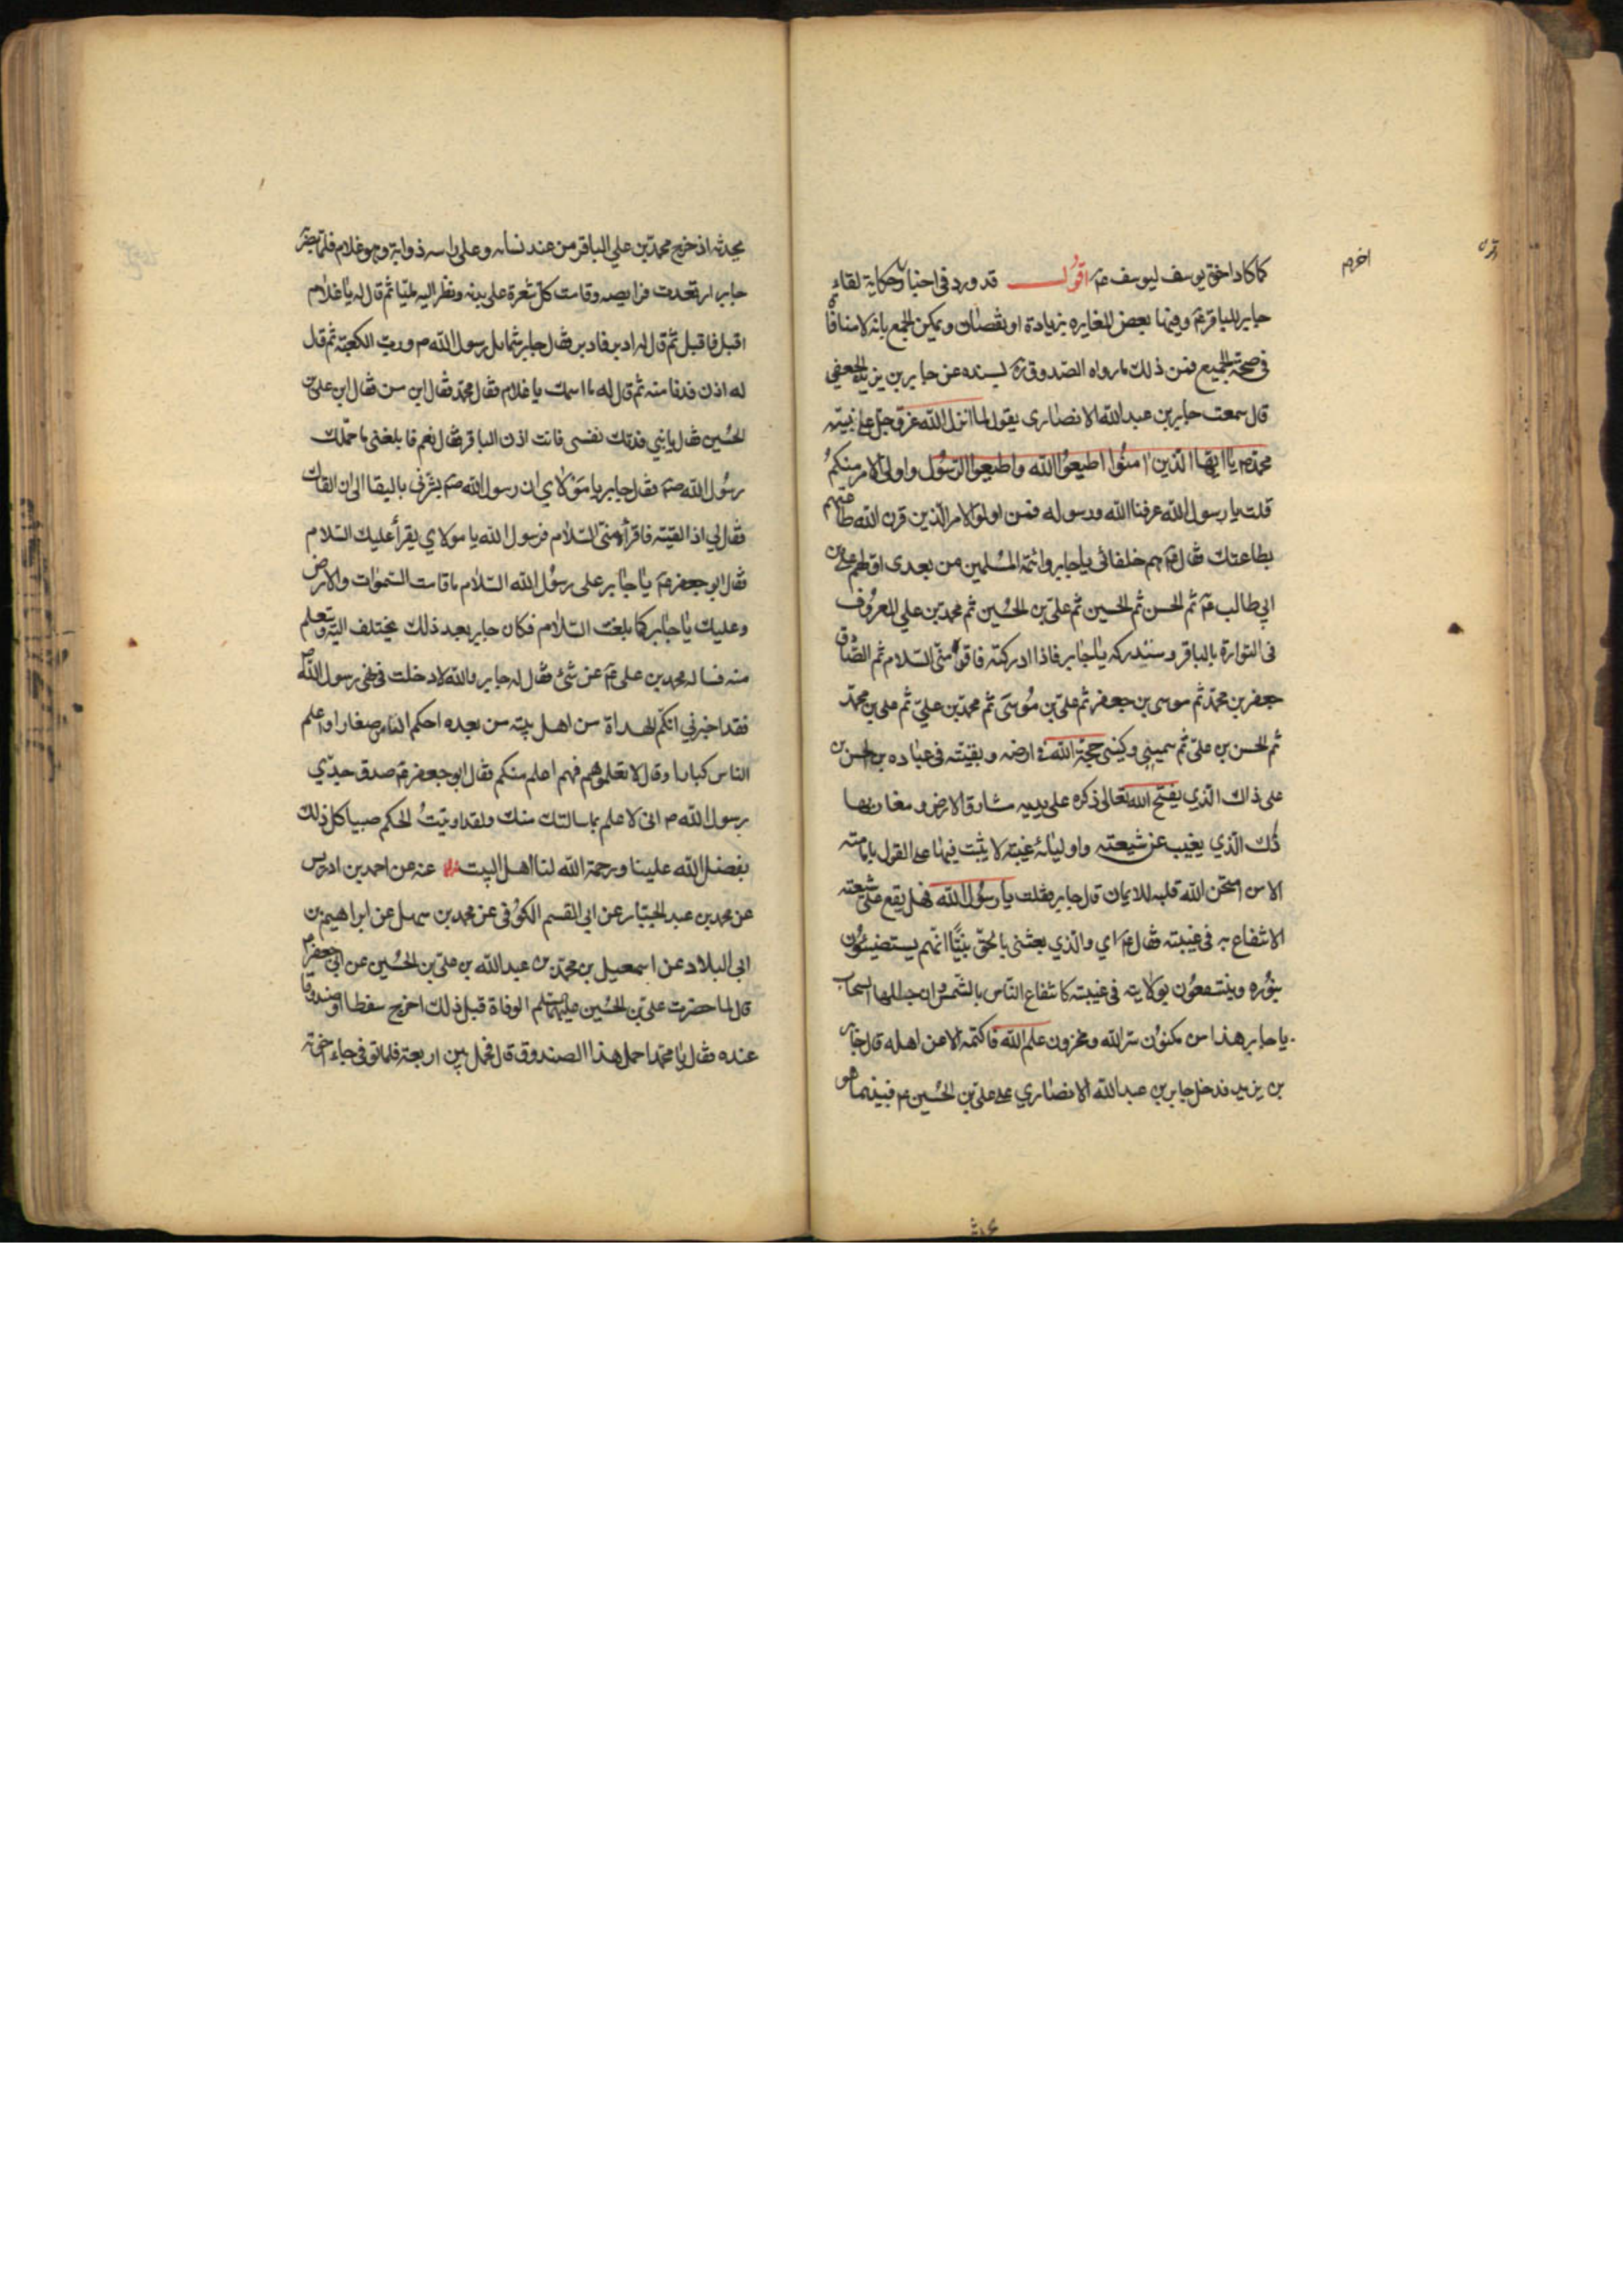 كما كاد اخوة يوسف ليوسف ع اقول قد ورد في اخبار حكاية لقاء
جابر للباقر ع وفيها بعض المغايره بزيادة او نقصان ويمكن الجمع بانه لا منافاة
في صحة الجميع فمن ذلك ما رواه الصدوق ره بسنده عن جابر بن يزيد الجعفي
قال سمعت جابر بن عبد الله الانصاري يقول لما انزل الله عز و جل على نبيه
محمد ص يا ايها الذين امنوا اطيعوا الله واطيعوا الرسول واولي الامر منكم
قلت يا رسول الله عرفنا الله ورسوله فمن اولو الامر الذين قرن الله طاعتهم
بطاعتك فقال ص هم خلفائي يا جابر وائمة المسلمين من بعدي اولهم علي بن
ابي طالب ع ثم الحسن ثم الحسين ثم علي بن الحسين ثم محمد بن علي المعروف
في التوراة بالباقر وستدركه يا جابر فاذا ادركته فاقرأه مني السلام ثم الصادق
جعفر بن محمد ثم موسى بن جعفر ثم علي بن موسى ثم محمد بن علي ثم علي بن محمد
ثم الحسن بن علي ثم سميي وكنيي حجة الله في ارضه و بقيته في عباده بن الحسن بن
علي ذاك الذي يفتح الله تعالى ذكره على يديه مشارق الارض و مغاربها
ذلك الذي يغيب عن شيعته واوليائه غيبته لا يثبت فيها على القول بامامته
الا من امتحن الله قلبه للايمان قال جابر فقلت يا رسول الله فهل يقع على شيعته
الانتفاع به في غيبته فقال ع اي والذي بعثني بالحق نبيا انهم يستضيئون
بنوره وينتفعون بولايته في غيبته كانتفاع الناس بالشمس وان جللها السحاب
يا جابر هذا من مكنون سر الله ومخزون علم الله فاكتمه الا عن اهله قال جابر
بن يزيد فدخل جابر بن عبد الله الانصاري على علي بن الحسين ع فبينما هو
يحدثه اذ خرج محمد بن علي الباقر من عند نسائه وعلى راسه ذوابة وهو غلام فلما بصر
جابر ارتعدت فرايصه وقامت كل شعرة على بدنه ونظر اليه مليا ثم قال له يا غلام
اقبل فاقبل ثم قال له ادبر فادبر فقال جابر شمايل رسول الله ص ورب الكعبة ثم قال
له ادن فدنا منه ثم قال له ما اسمك يا غلام فقال محمد فقال ابن من فقال ابن علي بن
الحسين فقال يا بني فدتك نفسي فانت اذن الباقر فقال نعم فابلغني ما حملك
رسول الله ص فقال جابر يا مولاي ان رسول الله ص بشرني بالبقا الى ان القاك
فقال لي اذا لقيته فاقرأه مني السلام فرسول الله يا مولاي يقرأ عليك السلام
فقال ابو جعفر ع يا جابر على رسول الله السلام ما قامت السموات والارض
وعليك يا جابر كما بلغت السلام فكان جابر بعد ذلك يختلف اليه ويتعلم
منه فساله محمد بن علي ع عن شئ فقال له جابر والله لا دخلت في نهي رسول الله ص
فقد اخبرني انكم الهداة من اهل بيته من بعده احكم الناس صغارا واعلم
الناس كبارا وقال لا تعلموهم فهم اعلم منكم فقال ابو جعفر ع صدق جدي
رسول الله ص اني لاعلم بما سالتك منك ولقد اوتيت الحكم صبيا كل ذلك
بفضل الله علينا ورحمة الله لنا اهل البيت عنه عن احمد بن ادريس
عن محمد بن عبد الجبار عن ابي القسم الكوفي عن محمد بن سهل عن ابراهيم بن
ابي البلاد عن اسمعيل بن محمد بن عبد الله بن علي بن الحسين عن ابي جعفر ع
قال لما حضرت علي بن الحسين عليهما السلم الوفاة قبل ذلك اخرج سفطا او صندوقا
عنده فقال يا محمد احمل هذا الصندوق قال فحمل بين اربعة فلما توفي جاء اخوته